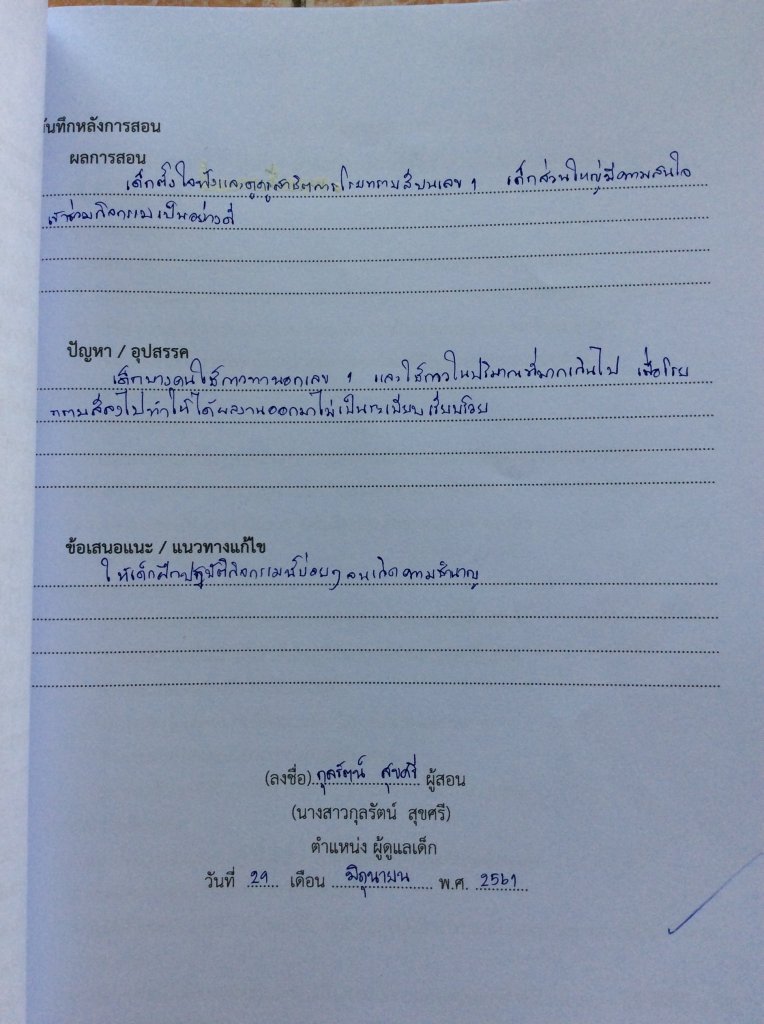 บันทึกหลังการสอน
ผลการสอน
เด็กตั้งใจฟังและดูครูสาธิตการโรยทรายสีบนเลข ๑ เด็กส่วนใหญ่มีความสนใจ
เข้าร่วมกิจกรรมเป็นอย่างดี
ปัญหา / อุปสรรค
เด็กบางคนใช้กาวทานอกเลข ๑ และใช้กาวในปริมาณที่มากเกินไป เมื่อโรย
ทรายสีลงไปทำให้ได้ผลงานออกมาไม่เป็นระเบียบเรียบร้อย
ข้อเสนอแนะ / แนวทางแก้ไข
ให้เด็กฝึกปฏิบัติกิจกรรมนี้บ่อยๆ จนเกิดความชำนาญ
(ลงชื่อ) กุลรัตน์ สุขศรี ผู้สอน
(นางสาวกุลรัตน์ สุขศรี)
ตำแหน่ง ผู้ดูแลเด็ก
วันที่ 29 เดือน มิถุนายน พ.ศ. 2561